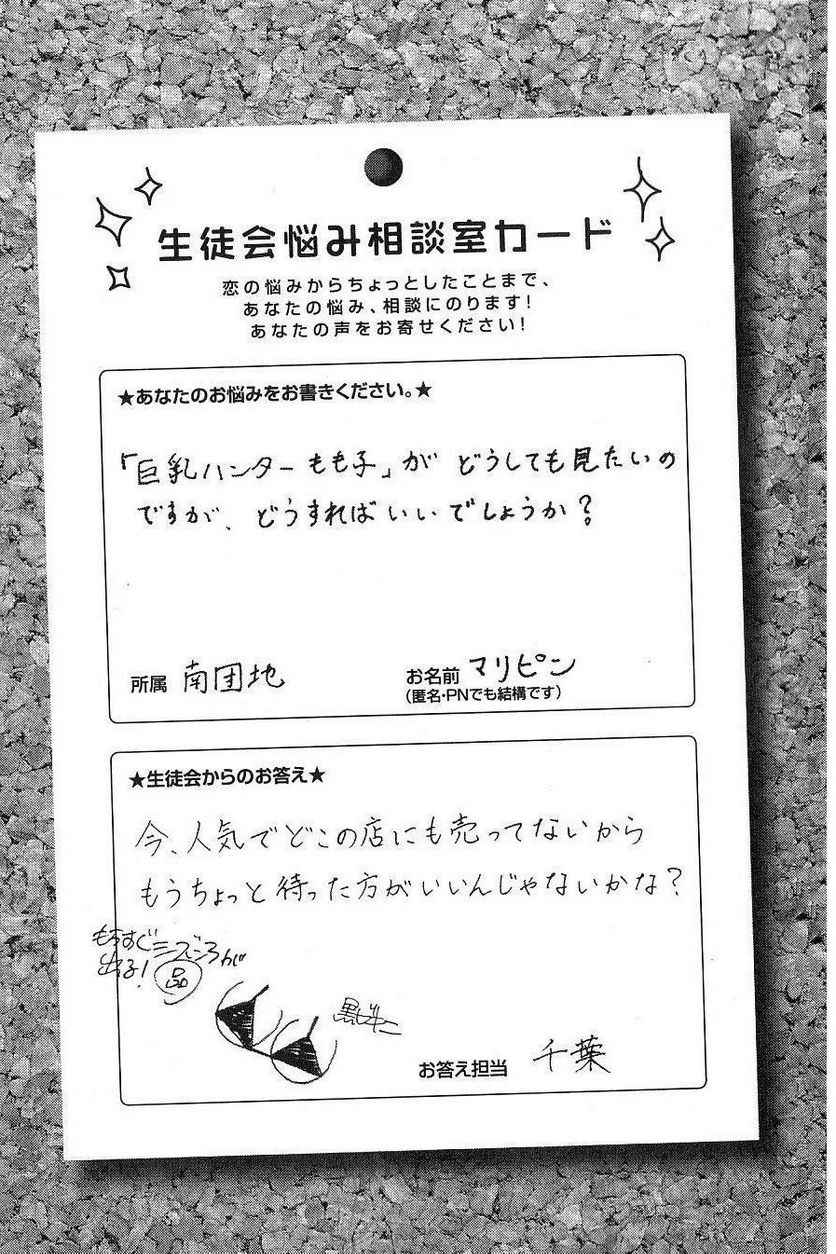 生徒会悩み相談室カード
恋の悩みからちょっとしたことまで、
あなたの悩み、相談にのります!
あなたの声をお寄せください!
★あなたのお悩みをお書きください。★
「巨乳ハンターもも子」がどうしても見たいの
ですが、どうすればいいでしょうか?
所属 南団地
お名前 マリピン
(匿名・PNでも結構です)
★生徒会からのお答え★
今、人気でどこの店にも売ってないから
もうちょっと待った方がいいんじゃないかな?
もうすぐ
出る!
品
黒ビキニ
お答え担当 千葉